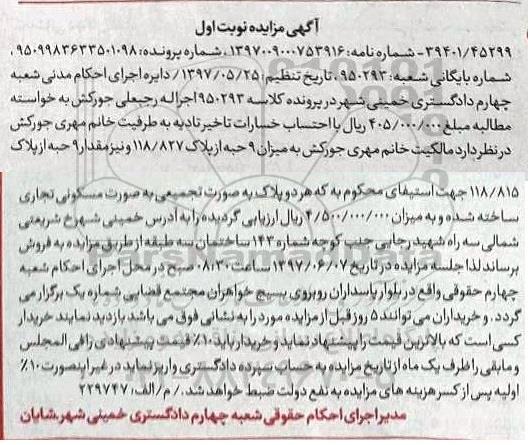 آگهی مزایده نوبت اول
۳۹۴۰۱/۴۵۲۹۹ - شماره نامه: ۱۳۹۷۰۰۹۰۰۰۷۵۳۹۱۶ ، شماره پرونده: ۹۵۰۹۹۸۳۶۳۳۵۰۱۰۹۸ ،
شماره بایگانی شعبه: ۹۵۰۲۹۳، تاریخ تنظیم: ۱۳۹۷/۰۵/۲۵ / دایره اجرای احکام مدنی شعبه
چهارم دادگستری خمینی شهر در پرونده کلاسه ۹۵۰۲۹۳ اجرا له رجبعلی جورکش به خواسته
مطالبه مبلغ ۴۰۵/۰۰۰/۰۰۰ ریال با احتساب خسارات تاخیر تادیه به طرفیت خانم مهری جورکش
در نظر دارد مالکیت خانم مهری جورکش به میزان ۹ حبه از پلاک ۱۱۸/۸۲۷ و نیز مقدار ۹ حبه از پلاک
۱۱۸/۸۱۵ جهت استیفای محکوم به که هر دو پلاک به صورت تجمیعی به صورت مسکونی تجاری
ساخته شده و به میزان ۴/۵۰۰/۰۰۰/۰۰۰ ریال ارزیابی گردیده را به آدرس خمینی شهر خ شریعتی
شمالی سه راه شهید رجایی جنب کوچه شماره ۱۴۳ ساختمان سه طبقه از طریق مزایده به فروش
برساند لذا جلسه مزایده در تاریخ ۱۳۹۷/۰۶/۰۷ ساعت ۰۸:۳۰ صبح در محل اجرای احکام شعبه
چهارم حقوقی واقع در بلوار پاسداران روبروی بسیج خواهران مجتمع قضایی شماره یک برگزار می
گردد. و خریداران می توانند ۵ روز قبل از مزایده مورد را به نشانی فوق می باشد بازدید نمایند خریدار
کسی است که بالاترین قیمت را پیشنهاد نماید و خریدار باید ۱۰٪ قیمت پیشنهادی را فی المجلس
و مابقی را ظرف یک ماه از تاریخ مزایده به حساب سپرده دادگستری واریز نماید در غیر اینصورت ۱۰٪
اولیه پس از کسر هزینه های مزایده به نفع دولت ضبط خواهد شد. / م / الف: ۲۲۹۷۴۷
مدیر اجرای احکام حقوقی شعبه چهارم دادگستری خمینی شهر، شایان